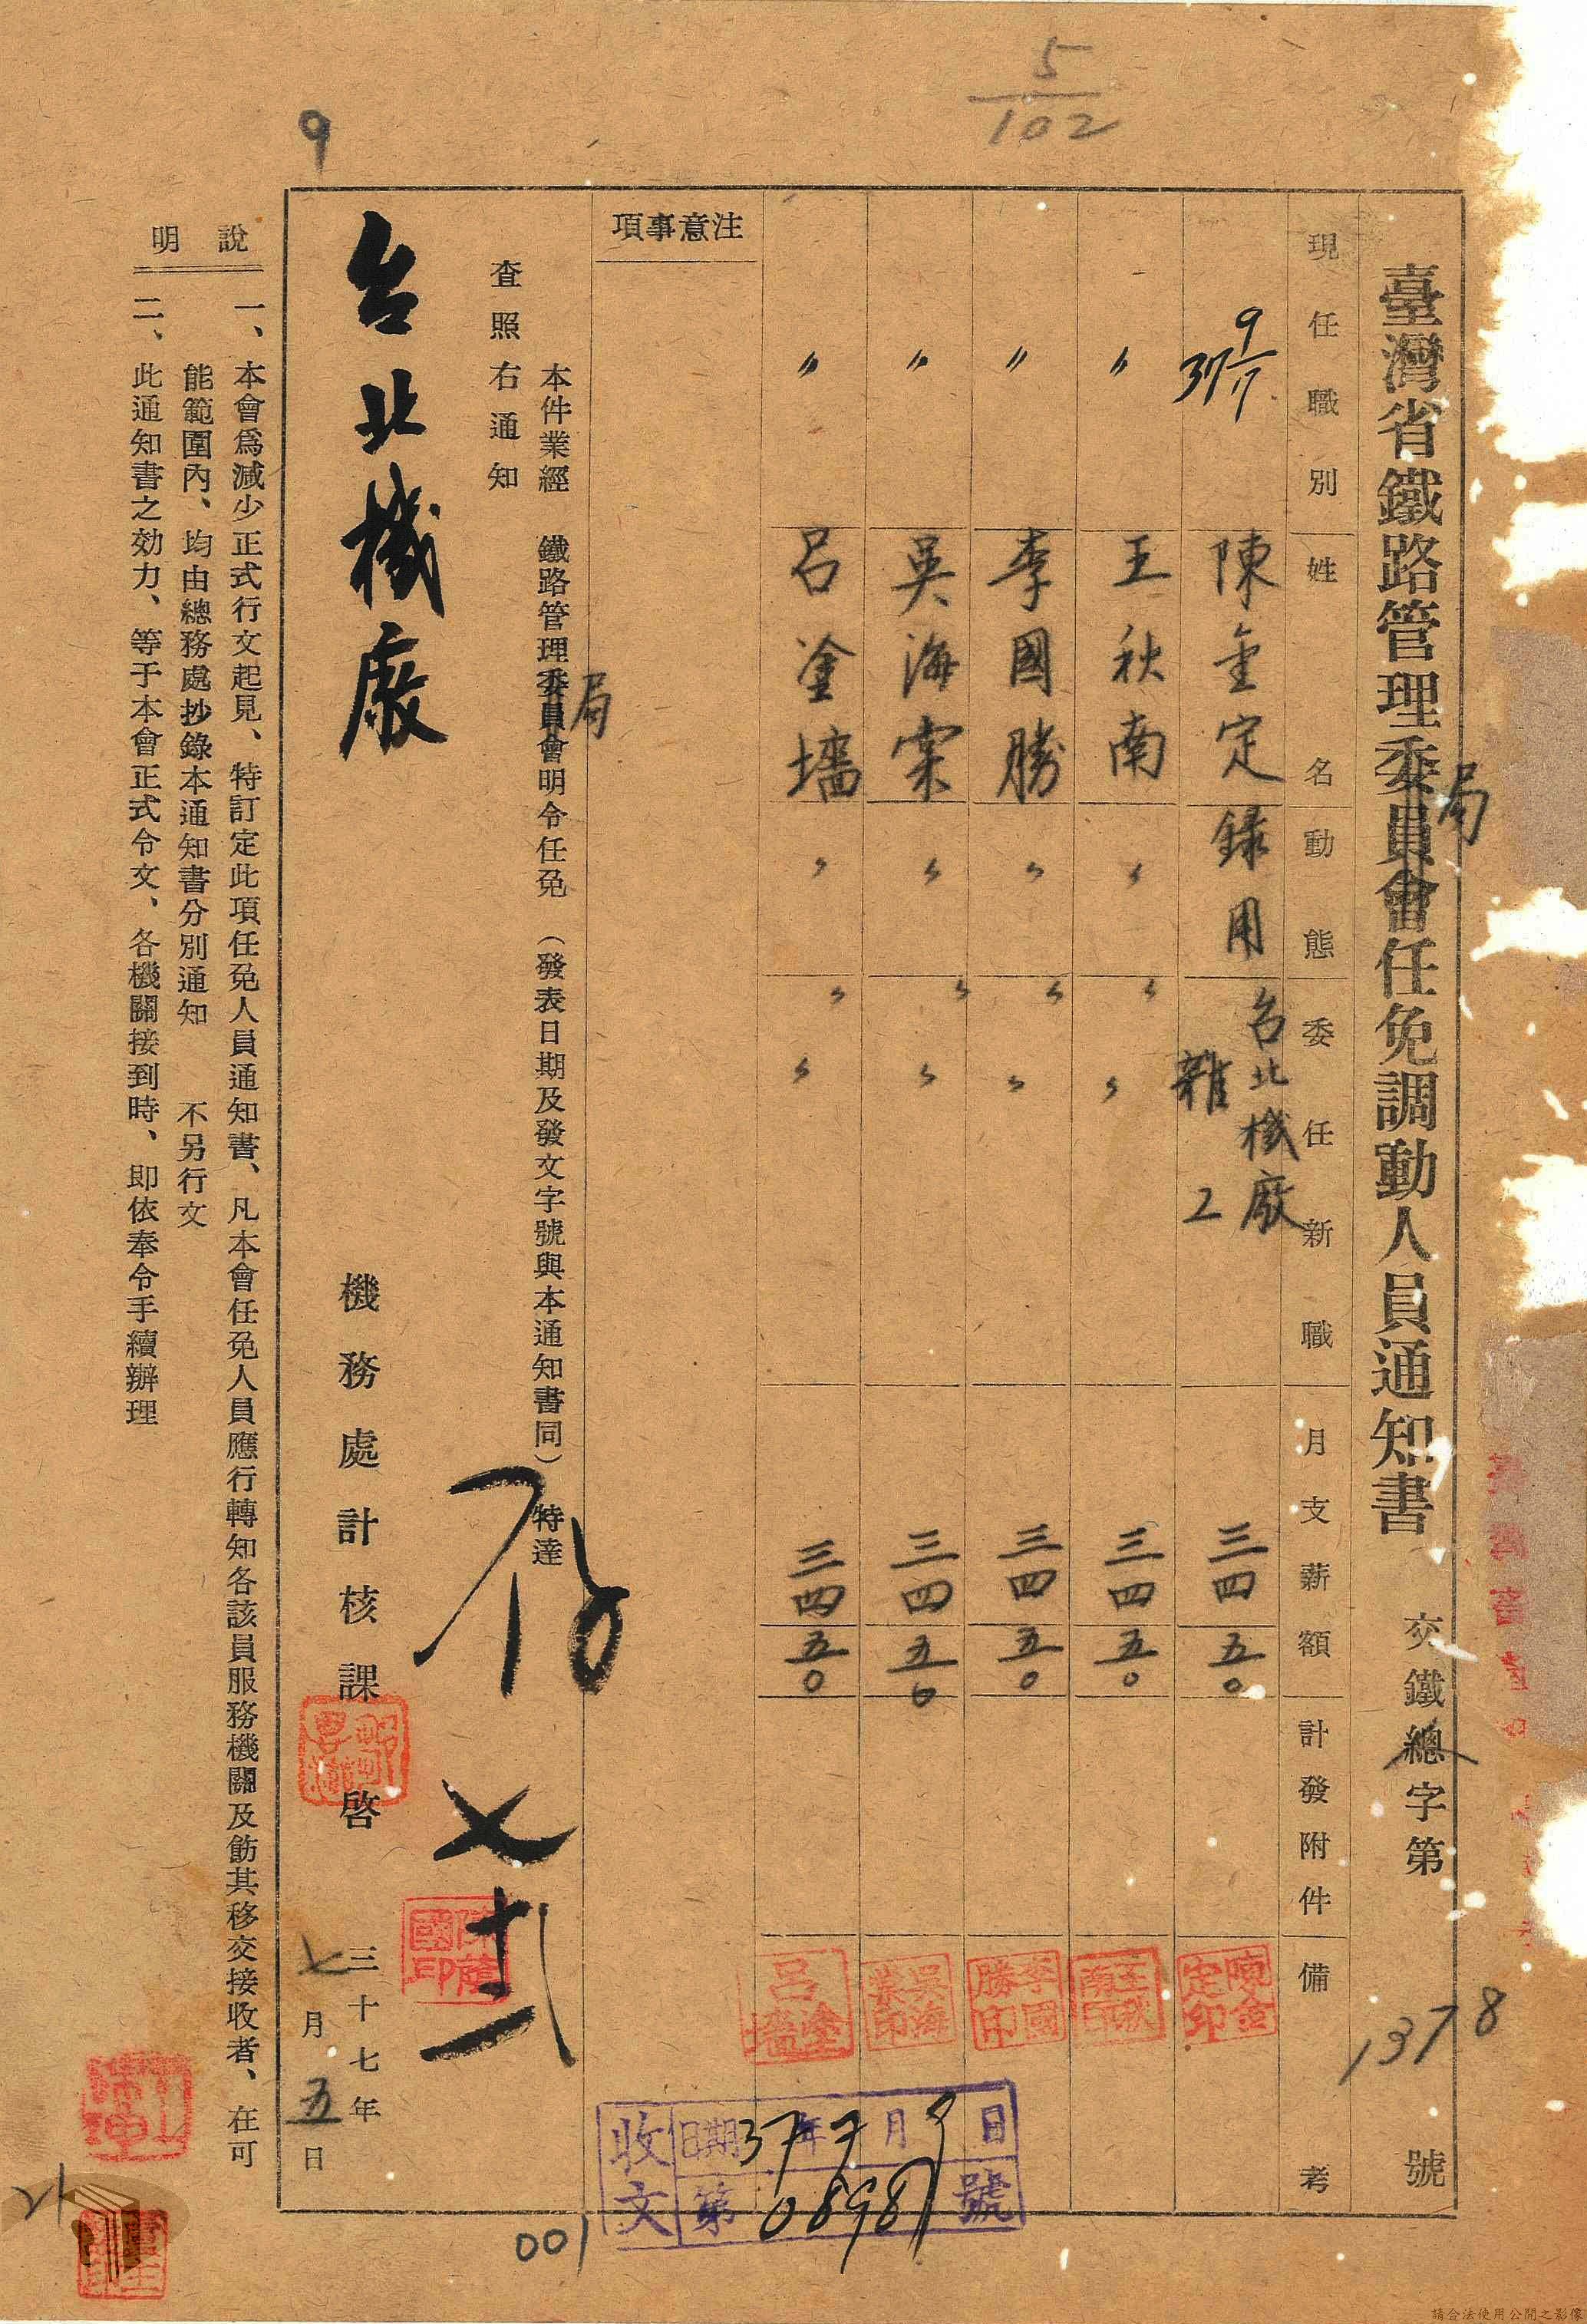 5/102
9
臺灣省鐵路管理委員會任免調動人員通知書
局
交鐵總字第 1378 號
現任職別 姓名 動態 委任新職 月支薪額 計發附件 備考
37 9/17 陳金定 錄用 台北機廠 雜工 三四五〇 陳金定印
〃 王秋南 〃 〃 〃 三四五〇 王秋南印
〃 李國勝 〃 〃 〃 三四五〇 李國勝印
〃 吳海 〃 〃 〃 三四五〇
〃 呂塗墻 〃 〃 〃 三四五〇 呂塗墻
注意事項
本件業經 鐵路管理委員會明令任免 (發表日期及發文字號與本通知書同) 特達
局
查照右通知
台北機廠
機務處計核課 啓
三十七年
七月五日
說明
一、本會爲減少正式行文起見、特訂定此項任免人員通知書、凡本會任免人員應行轉知各該員服務機關及飭其移交接收者、在可
能範圍內、均由總務處抄錄本通知書分別通知 不另行文
二、此通知書之効力、等于本會正式令文、各機關接到時、即依奉令手續辦理
收文
日期 37年7月9日
第 08987 號
001
請合法使用公開之影像